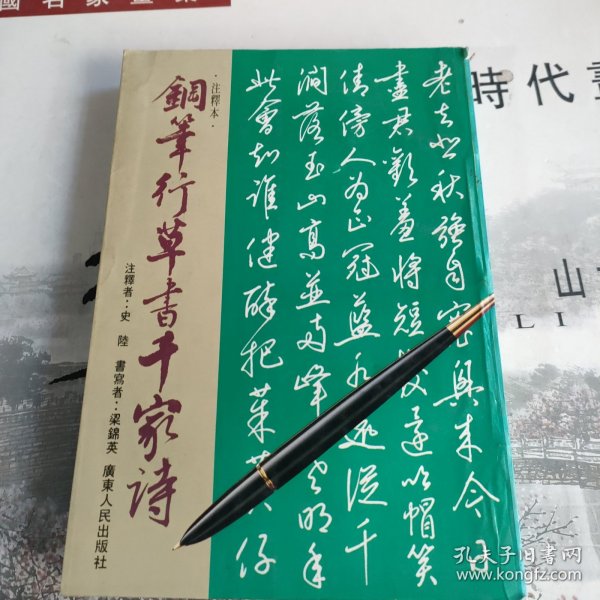 國名家畫集
時代
山
LI
老去悲秋強自寬興來今日
盡君歡羞將短髮還吹帽笑
倩傍人為正冠藍水遠從千
澗落玉山高並兩峰寒明年
此會知誰健醉把茱萸仔
·注釋本·
鋼筆行草書千家詩
注釋者：史 陸 書寫者：梁錦英 廣東人民出版社
孔夫子旧书网
www.kongfz.com